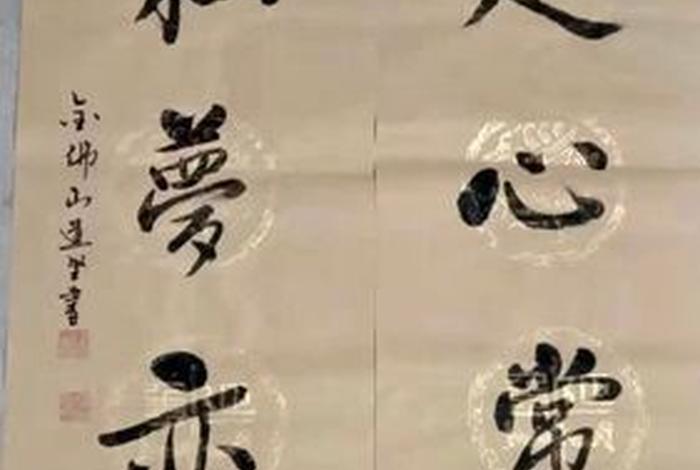 心常
夢亦
金佛山道堅書